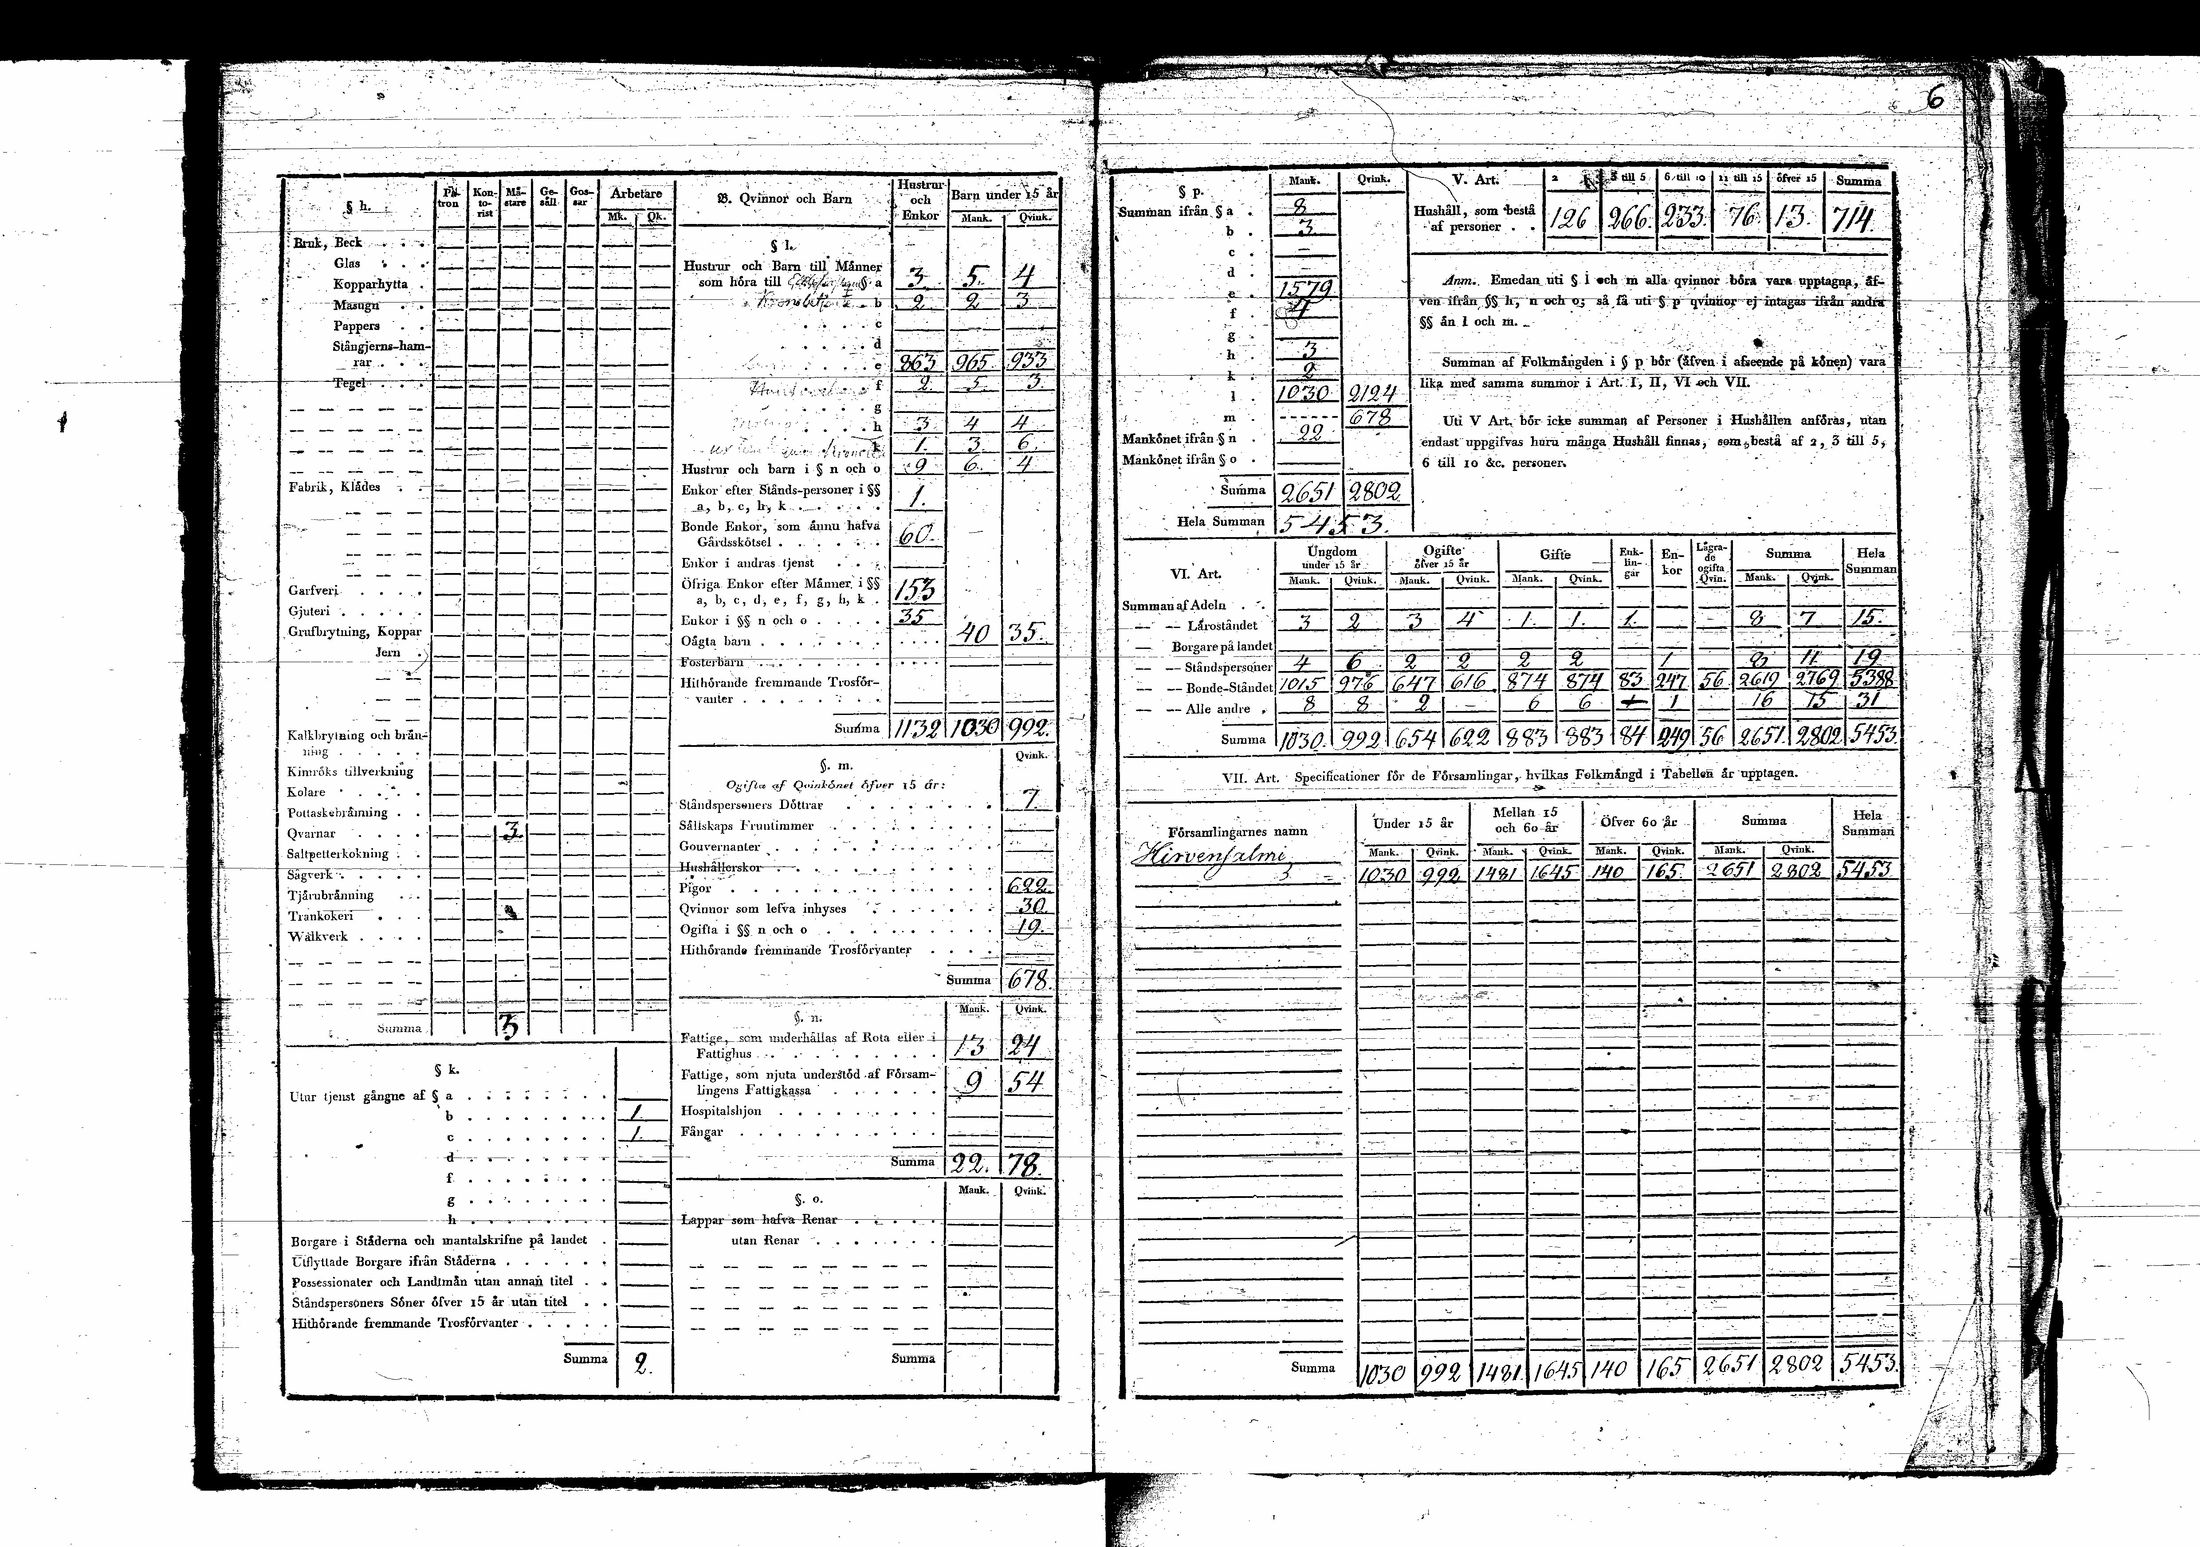 6
§ h. Patron Kontorist Mästare Gesäll Gossar Arbetare
Mk. Qk.
Bruk, Beck . . .
Glas . . .
Kopparhytta .
Masugn . .
Pappers . .
Stångjerns-ham-
rar . . .
Tegel . . .
Fabrik, Klädes . .
Garfveri . . . .
Gjuteri . . . . .
Grufbrytning, Koppar
Jern .
Kalkbrytning och brän-
ning . . . . .
Kimröks tillverkning
Kolare . . . . .
Pottaskebränning . .
Qvarnar . . . . 3.
Saltpetterkokning . .
Sågverk . . . . .
Tjärubränning . . .
Trankokeri . . .
Walkverk . . . .
Summa 3
§ k.
Utur tjenst gångne af § a . . . . . . .
b . . . . . . . 1.
c . . . . . . . 1.
d . . . . . . .
f . . . . . . .
g . . . . . . .
h . . . . . . .
Borgare i Städerna och mantalskrifne på landet .
Utflyttade Borgare ifrån Städerna . . . . . .
Possessionater och Landtmän utan annan titel . .
Ståndspersoners Söner öfver 15 år utan titel . .
Hithörande fremmande Trosförvanter . . . . .
Summa 2.
B. Qvinnor och Barn Hustrur och Enkor Barn under 15 år
Mank. Qvink.
§ l.
Hustrur och Barn till Männer
som höra till § a 3 5. 4
b 2 2 3
. . . . c
. . . . d
. . . . e 863 965 933
f 2. 5. 3
. . . . g
. . . . h 3 4 4
k 1. 3. 6.
Hustrur och barn i § n och o 9 6. 4
Enkor efter Stånds-personer i §§
a, b, c, h, k . . . . . 1.
Bonde Enkor, som ännu hafva
Gårdsskötsel . . . . . . 60.
Enkor i andras tjenst . . .
Öfriga Enkor efter Männer i §§
a, b, c, d, e, f, g, h, k . 153
Enkor i §§ n och o . . . . 35
Oägta barn . . . . . . . . . . . 40 35.
Fosterbarn . . . . . . . . . . .
Hithörande fremmande Trosför-
vanter . . . . . . . .
Summa 1132 1030 992.
§. m. Qvink.
Ogifta af Qvinkönet öfver 15 år:
Ståndspersoners Döttrar . . . . . . . 7.
Sällskaps Fruntimmer . . . . . . . .
Gouvernanter . . . . . . . . . . .
Hushållerskor . . . . . . . . . . .
Pigor . . . . . . . . . . . . . 622.
Qvinnor som lefva inhyses . . . . . . . 30.
Ogifta i §§ n och o . . . . . . . . . 19.
Hithörande fremmande Trosförvanter . . . .
Summa 678.
§. n. Mank. Qvink.
Fattige, som underhållas af Rota eller i
Fattighus . . . . . . . . . 13 24
Fattige, som njuta understöd af Försam-
lingens Fattigkassa . . . . . . 9 54
Hospitalshjon . . . . . . . . .
Fångar . . . . . . . . . . .
Summa 22. 78.
§. o. Mank. Qvink.
Lappar som hafva Renar . . . . .
utan Renar . . . . . . .
Summa
§ p. Mank. Qvink.
Summan ifrån § a . 8
b . 3
c . —
d . —
e . 1579
f . 4
g .
h . 3
k . 2
l . 1030 2124
m . - - - - - - 678
Mankönet ifrån § n . 22
Mankönet ifrån § o .
Summa 2651 2802
Hela Summan 5453.
V. Art. 2 3 till 5 6 till 10 11 till 15 öfver 15 Summa
Hushåll, som bestå
af personer . . 126 266. 233. 76. 13. 714.
Anm. Emedan uti § l och m alla qvinnor böra vara upptagna, äf-
ven ifrån §§ h, n och o; så få uti § p qvinnor ej intagas ifrån andra
§§ än l och m.
Summan af Folkmängden i § p bör (äfven i afseende på könen) vara
lika med samma summor i Art. I, II, VI och VII.
Uti V Art. bör icke summan af Personer i Hushållen anföras, utan
endast uppgifvas huru många Hushåll finnas, som bestå af 2, 3 till 5,
6 till 10 &c. personer.
VI. Art. Ungdom under 15 år Ogifte öfver 15 år Gifte Enklingar Enkor Lägrade ogifta Qvin. Summa Hela Summan
Mank. Qvink. Mank. Qvink. Mank. Qvink. Mank. Qvink.
Summan af Adeln . .
— — Läroståndet 3 2 3 4 1. 1. 1. 8 7 15.
— Borgare på landet
— — Ståndspersoner 4 6 2 2 2 2 1 8 11 19
— — Bonde-Ståndet 1015 976 647 616 874 874 83 247 56 2619 2769 5388
— — Alle andre . 8 8 2 — 6 6 1 16 15 31
Summa 1030. 992 654 622 883 883 84 249 56 2651. 2802 5453.
VII. Art. Specificationer för de Församlingar, hvilkas Folkmängd i Tabellen är upptagen.
Församlingarnes namn Under 15 år Mellan 15 och 60 år Öfver 60 år Summa Hela Summan
Mank. Qvink. Mank. Qvink. Mank. Qvink. Mank. Qvink.
Hirvensalmi 1030 992 1481 1645 140 165. 2651 2802 5453
Summa 1030 992 1481. 1645 140 165 2651 2802 5453.